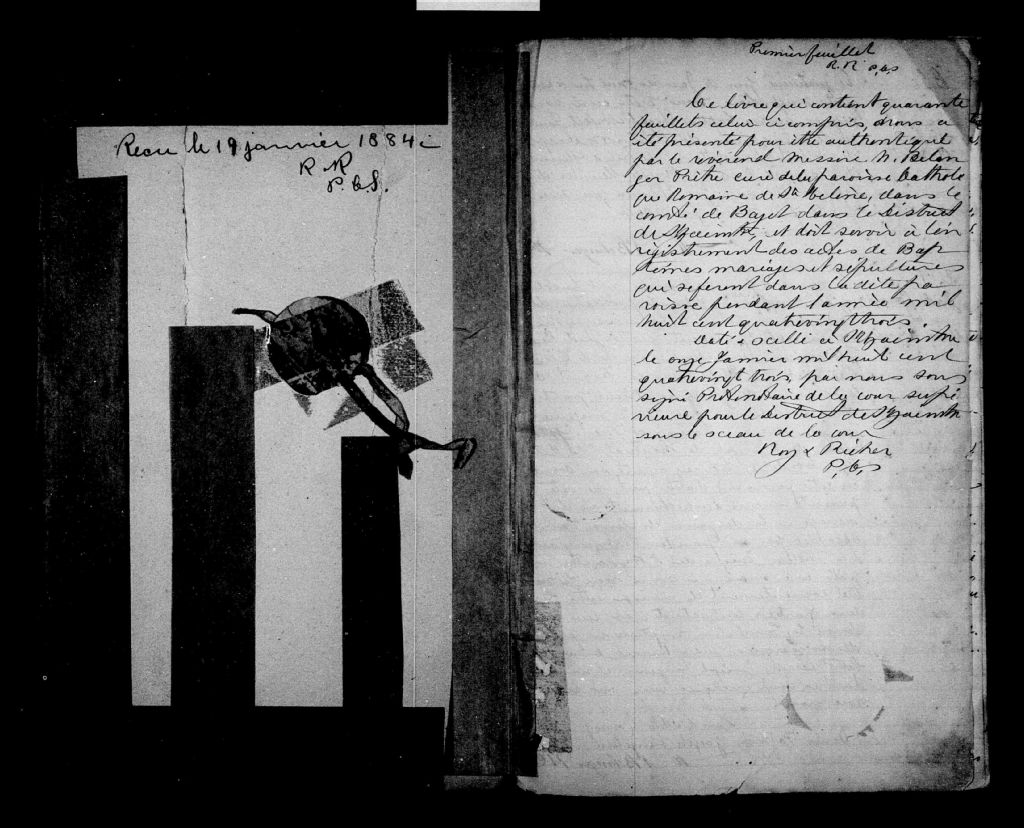 Recu le 19 janvier 1884
R & R
P.C.S.
Premier feuillet
R. R P.C.S
Ce livre qui contient quarante
feuillets celui ci compris, nous a
été présenté pour être authentiqué
par le révérend Messire N. Belan
ger Prêtre curé de la paroisse Catholi
que Romaine de Ste Hélène, dans le
comté de Bagot dans le District
de St Hyacinthe, et doit servir à l'en
régistrement des actes de Bap
têmes mariages et sépultures
qui se feront dans la dite pa
roisse pendant l'année mil
huit cent quatrevingt trois.
Daté & scellé à St Hyacinthe
le onze Janvier mil huit cent
quatrevingt trois, par nous sous
signé Protonotaire de la cour supé
rieure pour le District de St Hyacinthe
sous le sceau de la cour
Roy & Richer
P.C.S